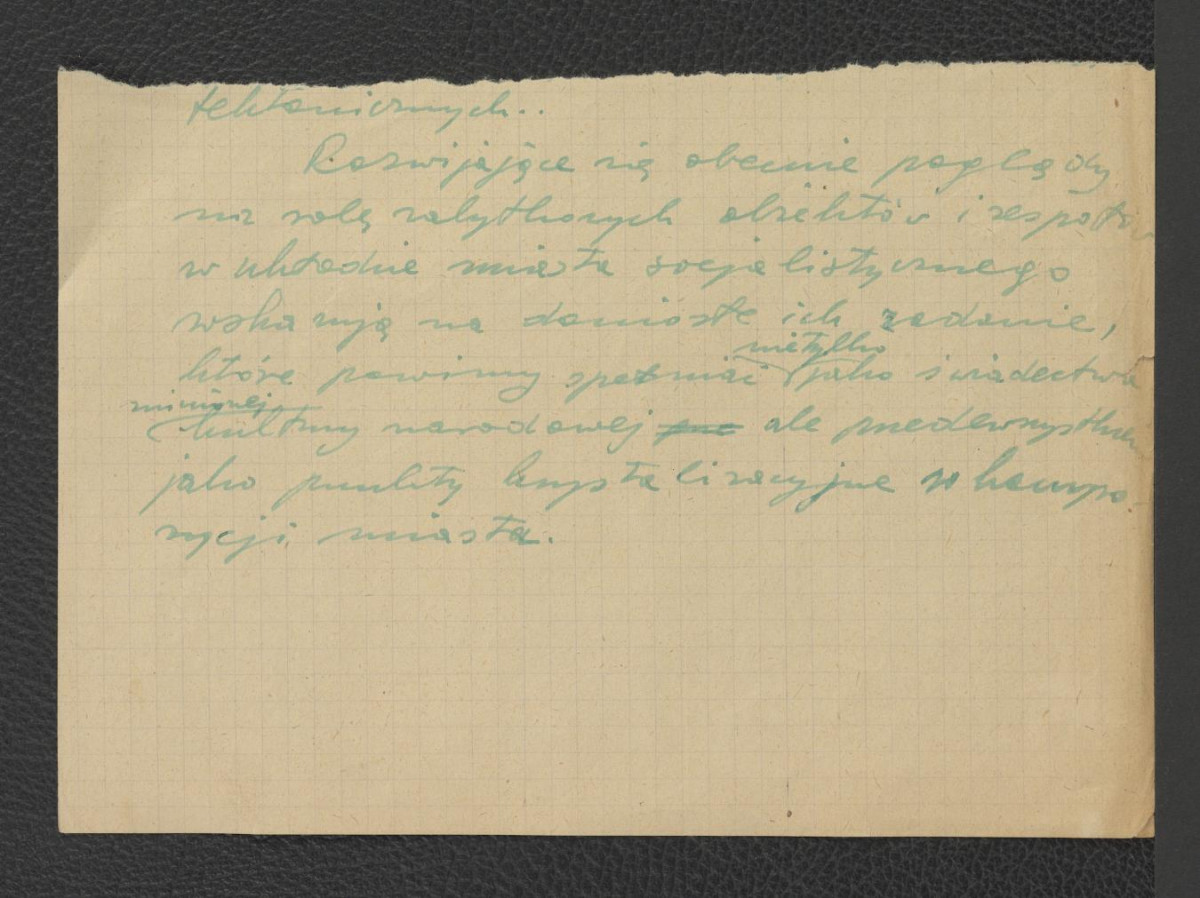 tektonicznych..
Rozwijające się obecnie poglądy
na rolę zabytkowych obiektów i zespołów
w układzie miasta socjalistycznego
wskazują na doniosłe ich zadanie,
nietylko
które powinny spełniać jako świadectwa
minionej
kultury narodowej ale przedewszystkiem
jako punkty krystalizacyjne w kompo-
zycji miasta.